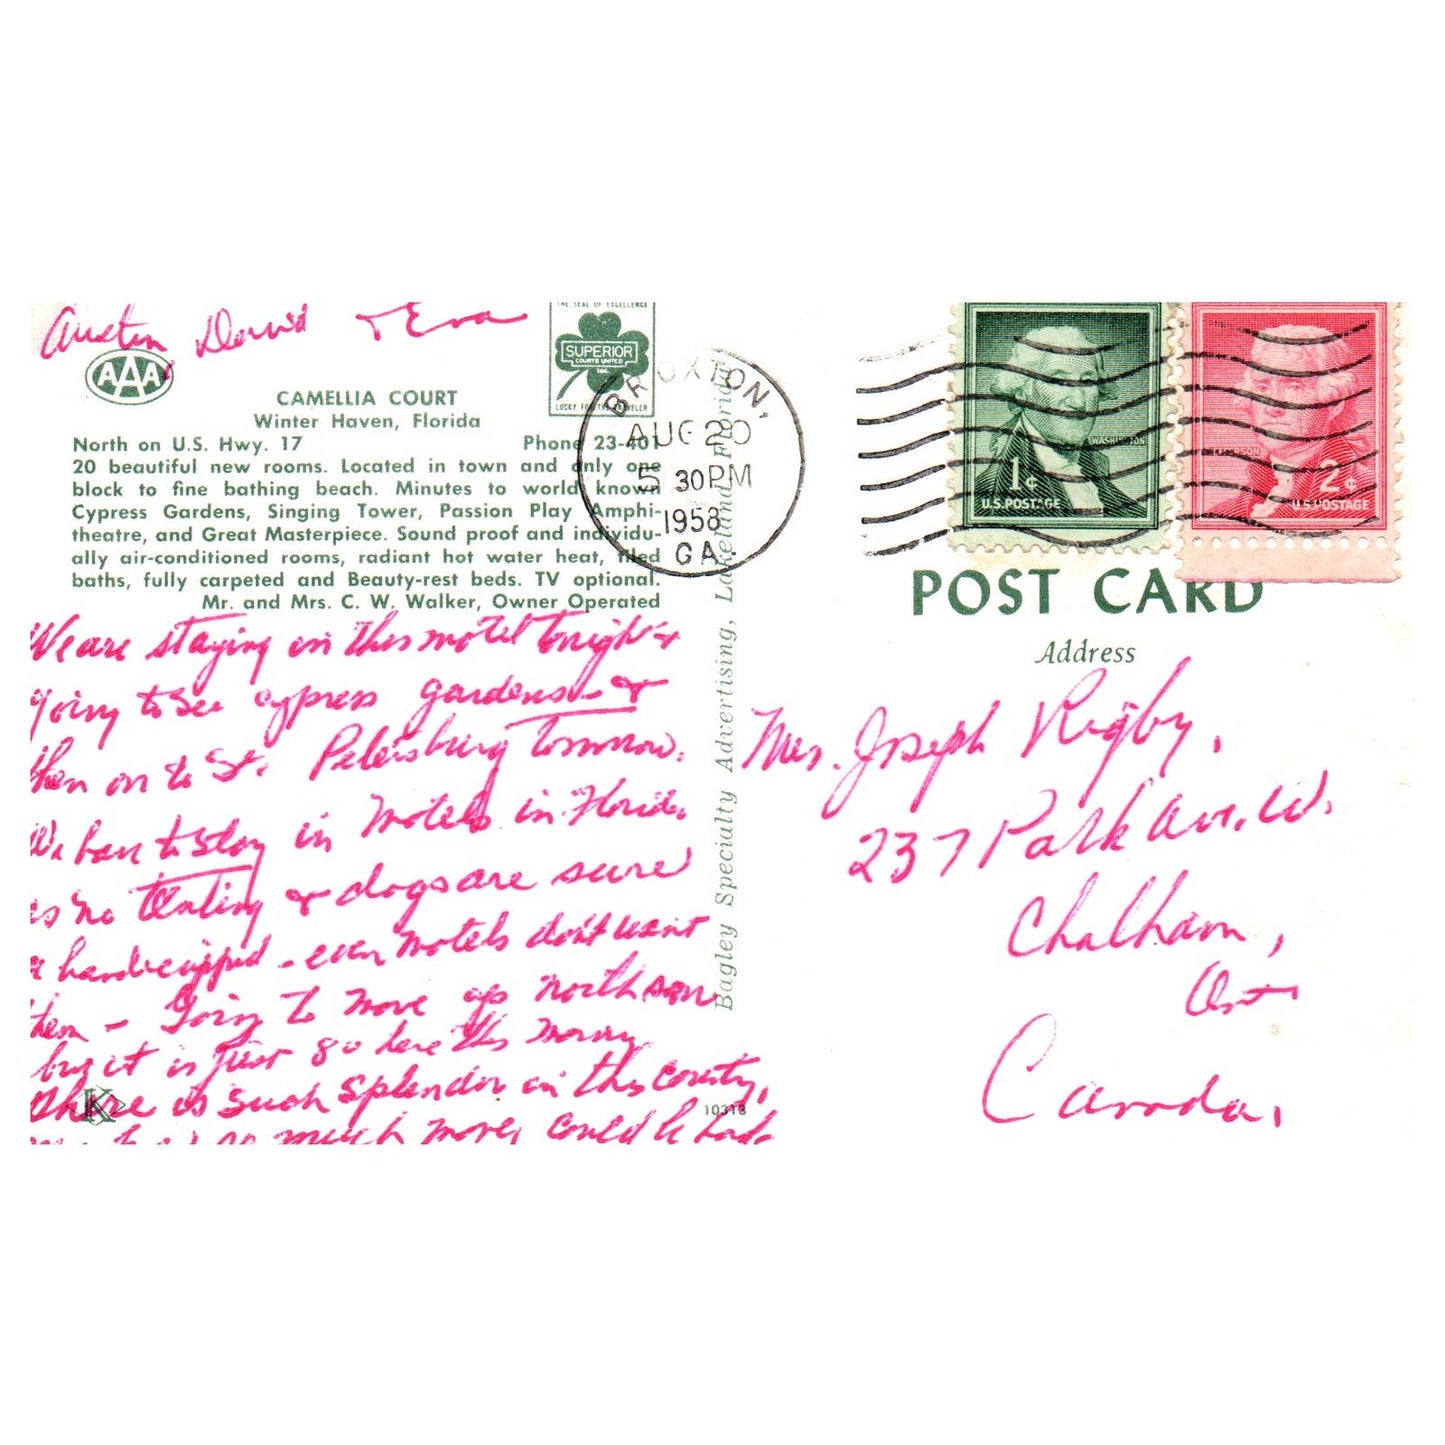 Austin, David & Eva
AAA
THE SEAL OF EXCELLENCE
SUPERIOR
COURTS UNITED
Inc.
LUCKY FOR THE TRAVELER
CAMELLIA COURT
Winter Haven, Florida
North on U.S. Hwy. 17 Phone 23-401
20 beautiful new rooms. Located in town and only one
block to fine bathing beach. Minutes to world known
Cypress Gardens, Singing Tower, Passion Play Amphi-
theatre, and Great Masterpiece. Sound proof and individu-
ally air-conditioned rooms, radiant hot water heat, tiled
baths, fully carpeted and Beauty-rest beds. TV optional.
Mr. and Mrs. C. W. Walker, Owner Operated
We are staying in this motel tonight &
going to see cypress gardens - &
then on to St. Petersburg tomorrow.
We have to stay in motels in Florida
as no tenting & dogs are sure
a handicapped - even motels don't want
them - Going to move up north
but it is just 80 here this morning
There is such splendor in this country,
so much more, could be had
K
10313
Bagley Specialty Advertising, Lakeland, Florida
BROXTON,
AUG 20
5 30 PM
1958
GA.
WASHINGTON
1¢
U.S. POSTAGE
JEFFERSON
2¢
U.S. POSTAGE
POST CARD
Address
Mrs. Joseph Rigby,
237 Park Ave. W.
Chatham,
Ont
Canada,